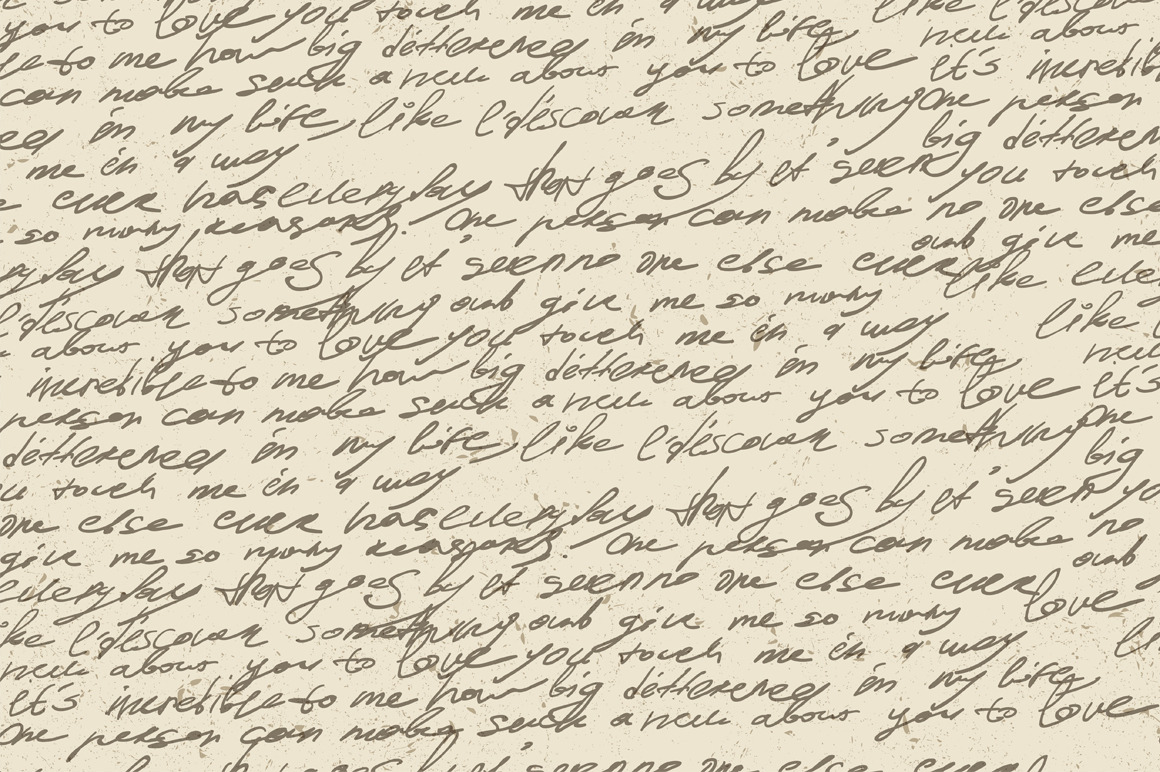 you to love you touch me in a way like I discover
to me how big difference in my life new about
can make such a new about you to love it's incredib
in my life, like I discover something One person
me in a way big differen
ever has everyday that goes by it seem you touch
so many reasons. One person can make no one else
that goes by it seem no one else ever and give me
I discover something and give me so many like
about you to love you touch me in a way like
incredible to me how big difference in my life new
person can make such a new about you to love it's
difference in my life, like I discover something One
touch me in a way big
one else ever has everyday that goes by it seem yo
give me so many reasons. One person can make no
everyday that goes by it seem no one else ever and
ke I discover something and give me so many love
new about you to love you touch me in a way li
it's incredible to me how big difference in my life
One person can make such a new about you to love